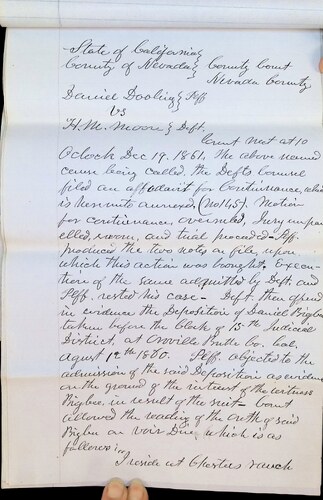 State of California }
County of Nevada } County Court
Nevada County
Daniel Dooling } Plff
Vs
H. M. Moore } Deft.
Court met at 10
Oclock Dec 19. 1861. The above named
cause being called, the Defts Counsel
filed an affadavit for Continuance, which
is hereunto annexed, (No 145). Motion
for continuance overruled, Jury impan
elled, sworn, and trial proceeded - Plff.
produced the two notes on file, upon
which this action was brought. Execu-
tion of the same admitted by Deft. and
Plff. rested his case - Deft. then offered
in evidence the Deposition of Daniel Bigbee
taken before the Clerk of 15th Judicial
District, at Oroville Butte Co. Cal.
August 12th 1860. Plff. objected to the
admission of the said Deposition as evidence
on the ground of the interest of the witness
Bigbee, in result of the suit - Court
allowed the reading of the oath of said
Bigbee on Voir Dire, which is as
follows: "
I reside at ranch